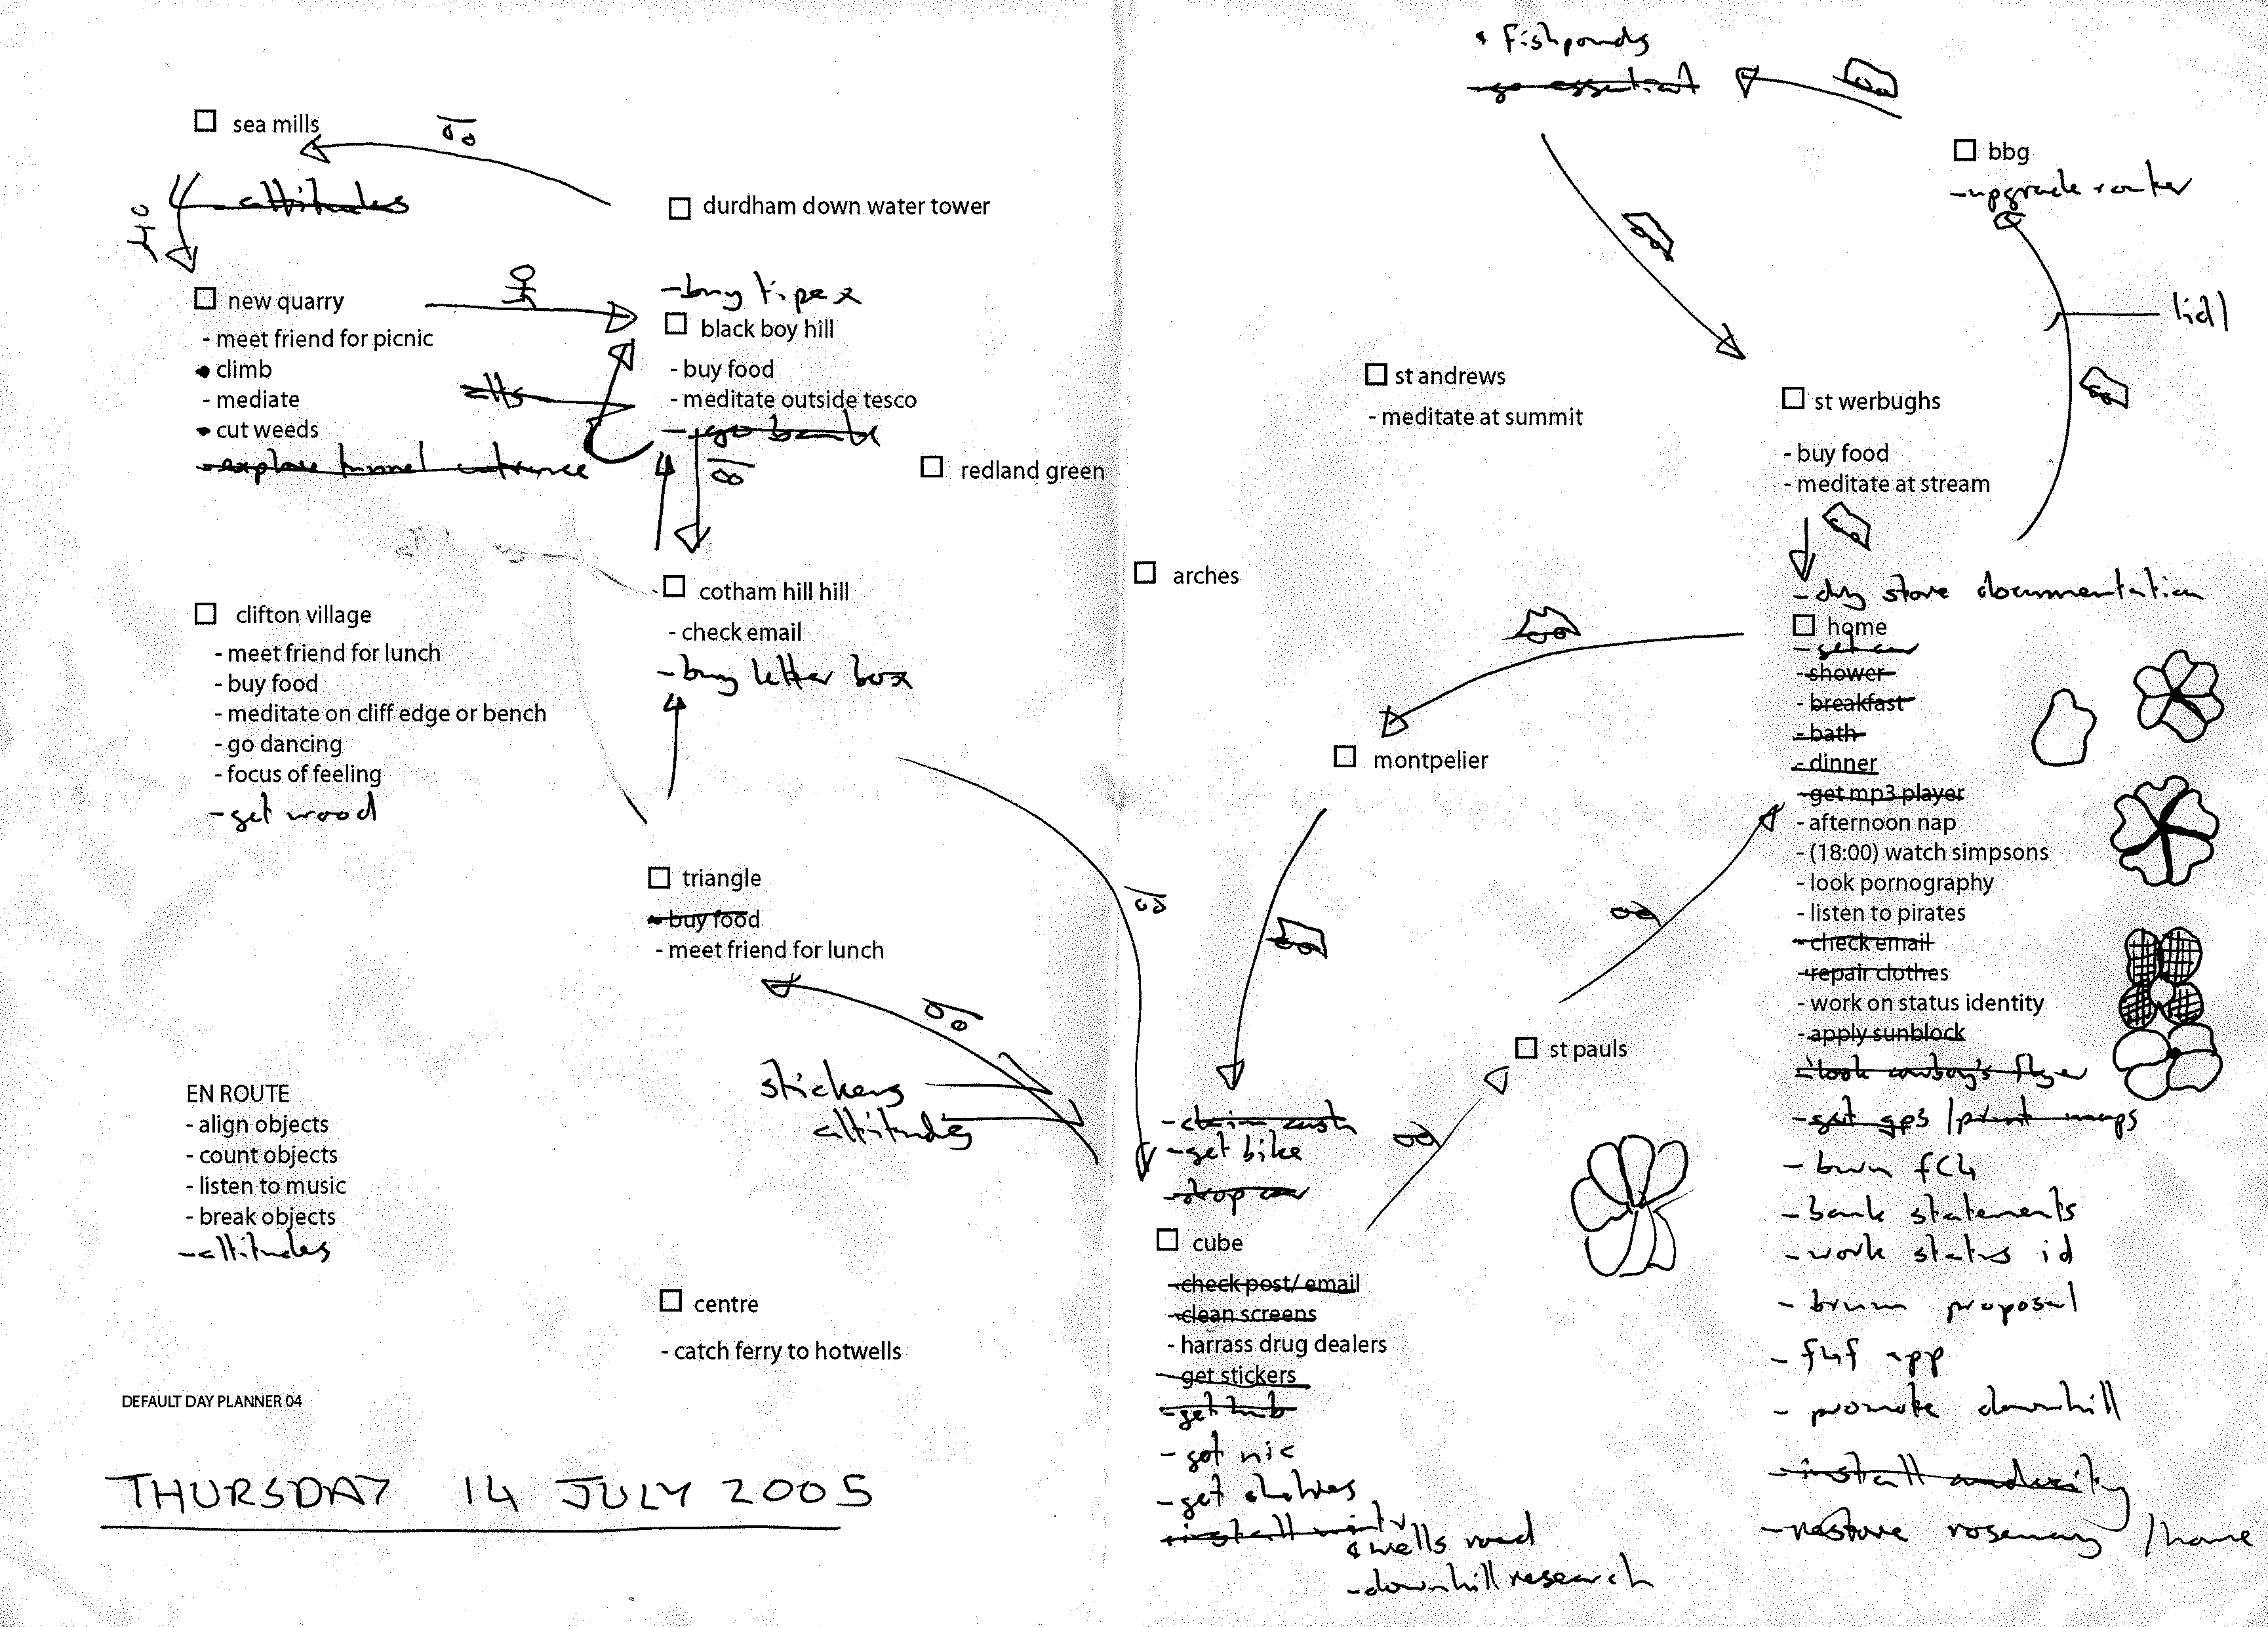 sea mills
- attitudes
durdham down water tower
new quarry
- meet friend for picnic
climb
- mediate
cut weeds
- explore tunnel entrance
- buy tipex
black boy hill
- buy food
- meditate outside tesco
- go bank
atts
redland green
clifton village
- meet friend for lunch
- buy food
- meditate on cliff edge or bench
- go dancing
- focus of feeling
- get wood
cotham hill hill
- check email
- buy letter box
triangle
- buy food
- meet friend for lunch
stickers
attitudes
EN ROUTE
- align objects
- count objects
- listen to music
- break objects
- attitudes
centre
- catch ferry to hotwells
DEFAULT DAY PLANNER 04
THURSDAY 14 JULY 2005
Fishponds
- go essential
bbg
- upgrade router
lidl
st andrews
- meditate at summit
st werbughs
- buy food
- meditate at stream
arches
montpelier
- dry store documentation
home
- get car
- shower
- breakfast
- bath
- dinner
- get mp3 player
- afternoon nap
- (18:00) watch simpsons
- look pornography
- listen to pirates
- check email
- repair clothes
- work on status identity
- apply sunblock
- look cowboy's flyer
- get gps / print maps
- burn fc4
- bank statements
- work status id
- brum proposal
- f4f app
- promote downhill
- install
- restore rosemary / home
st pauls
- claim cash
- get bike
- drop car
cube
- check post/ email
- clean screens
- harrass drug dealers
- get stickers
- get hub
- get nic
- get clothes
- install
wells road
- downhill research